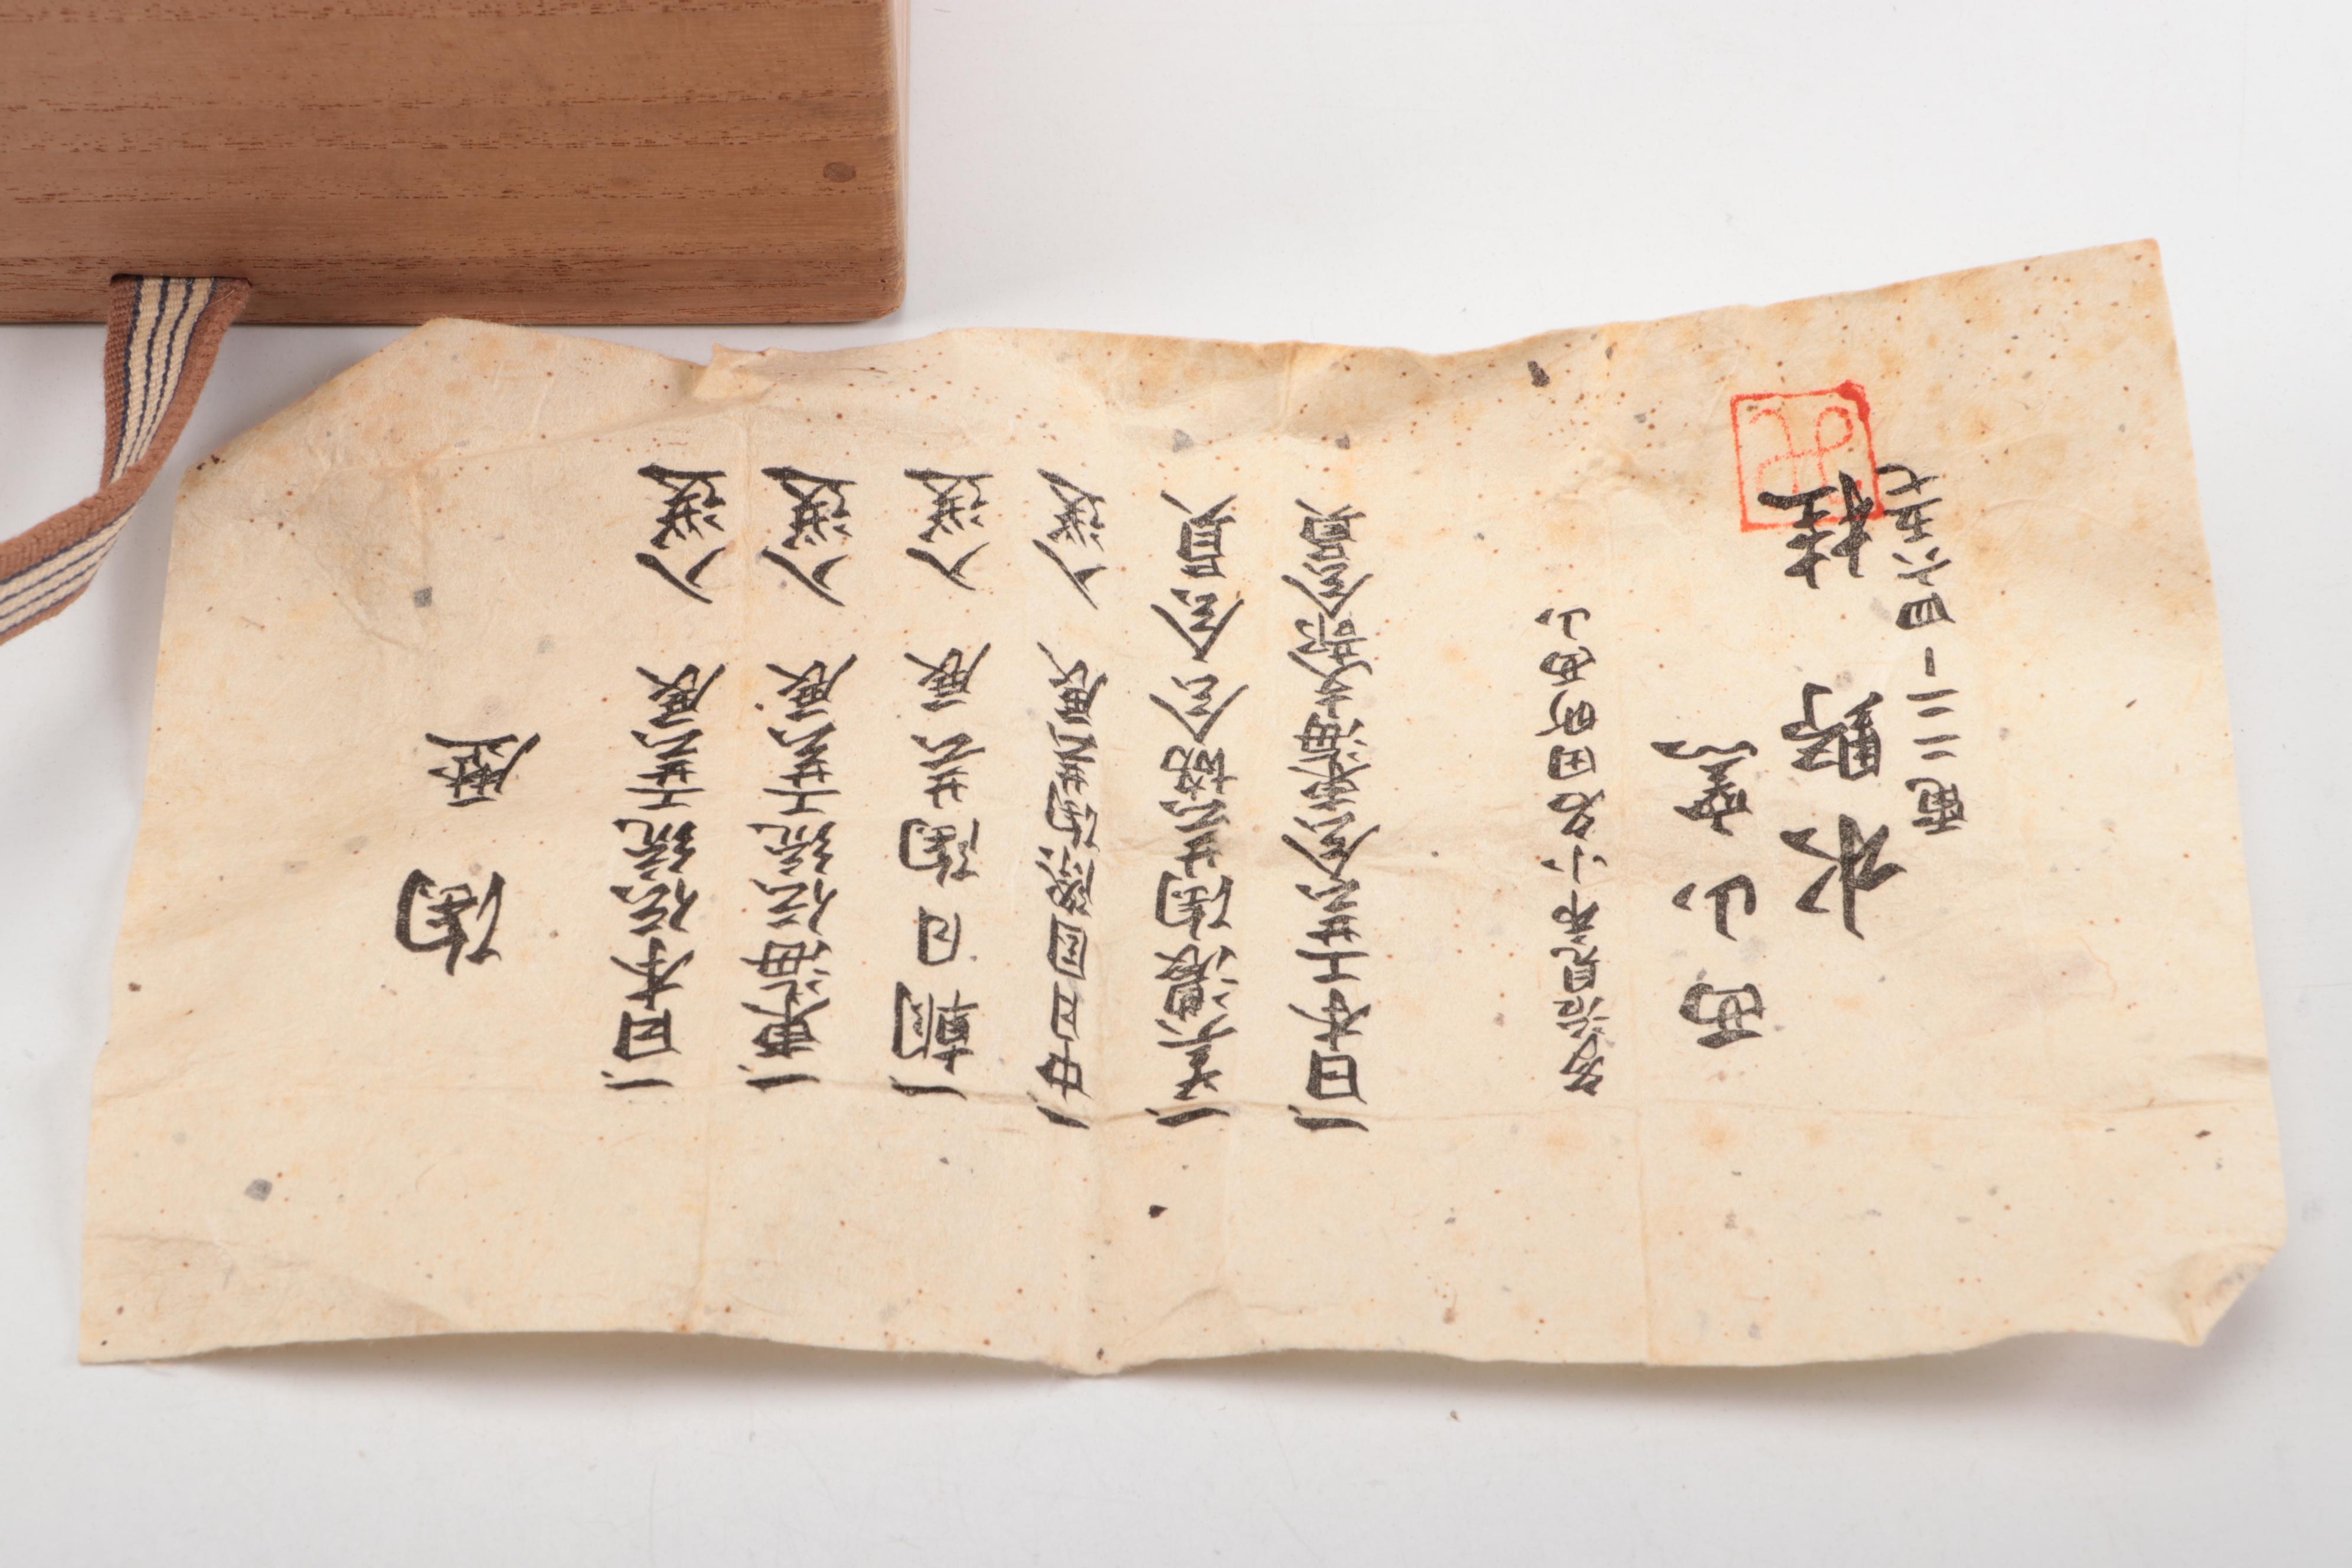 陶歴
一、日本伝統工芸展 入選
一、東海伝統工芸展 入選
一、朝日陶芸展 入選
一、中日国際陶芸展 入選
一、美濃陶芸協会会員
一、日本工芸会東海支部会員
多治見市小名田町西山
西山窯
水野 桂
電二二-四六五七